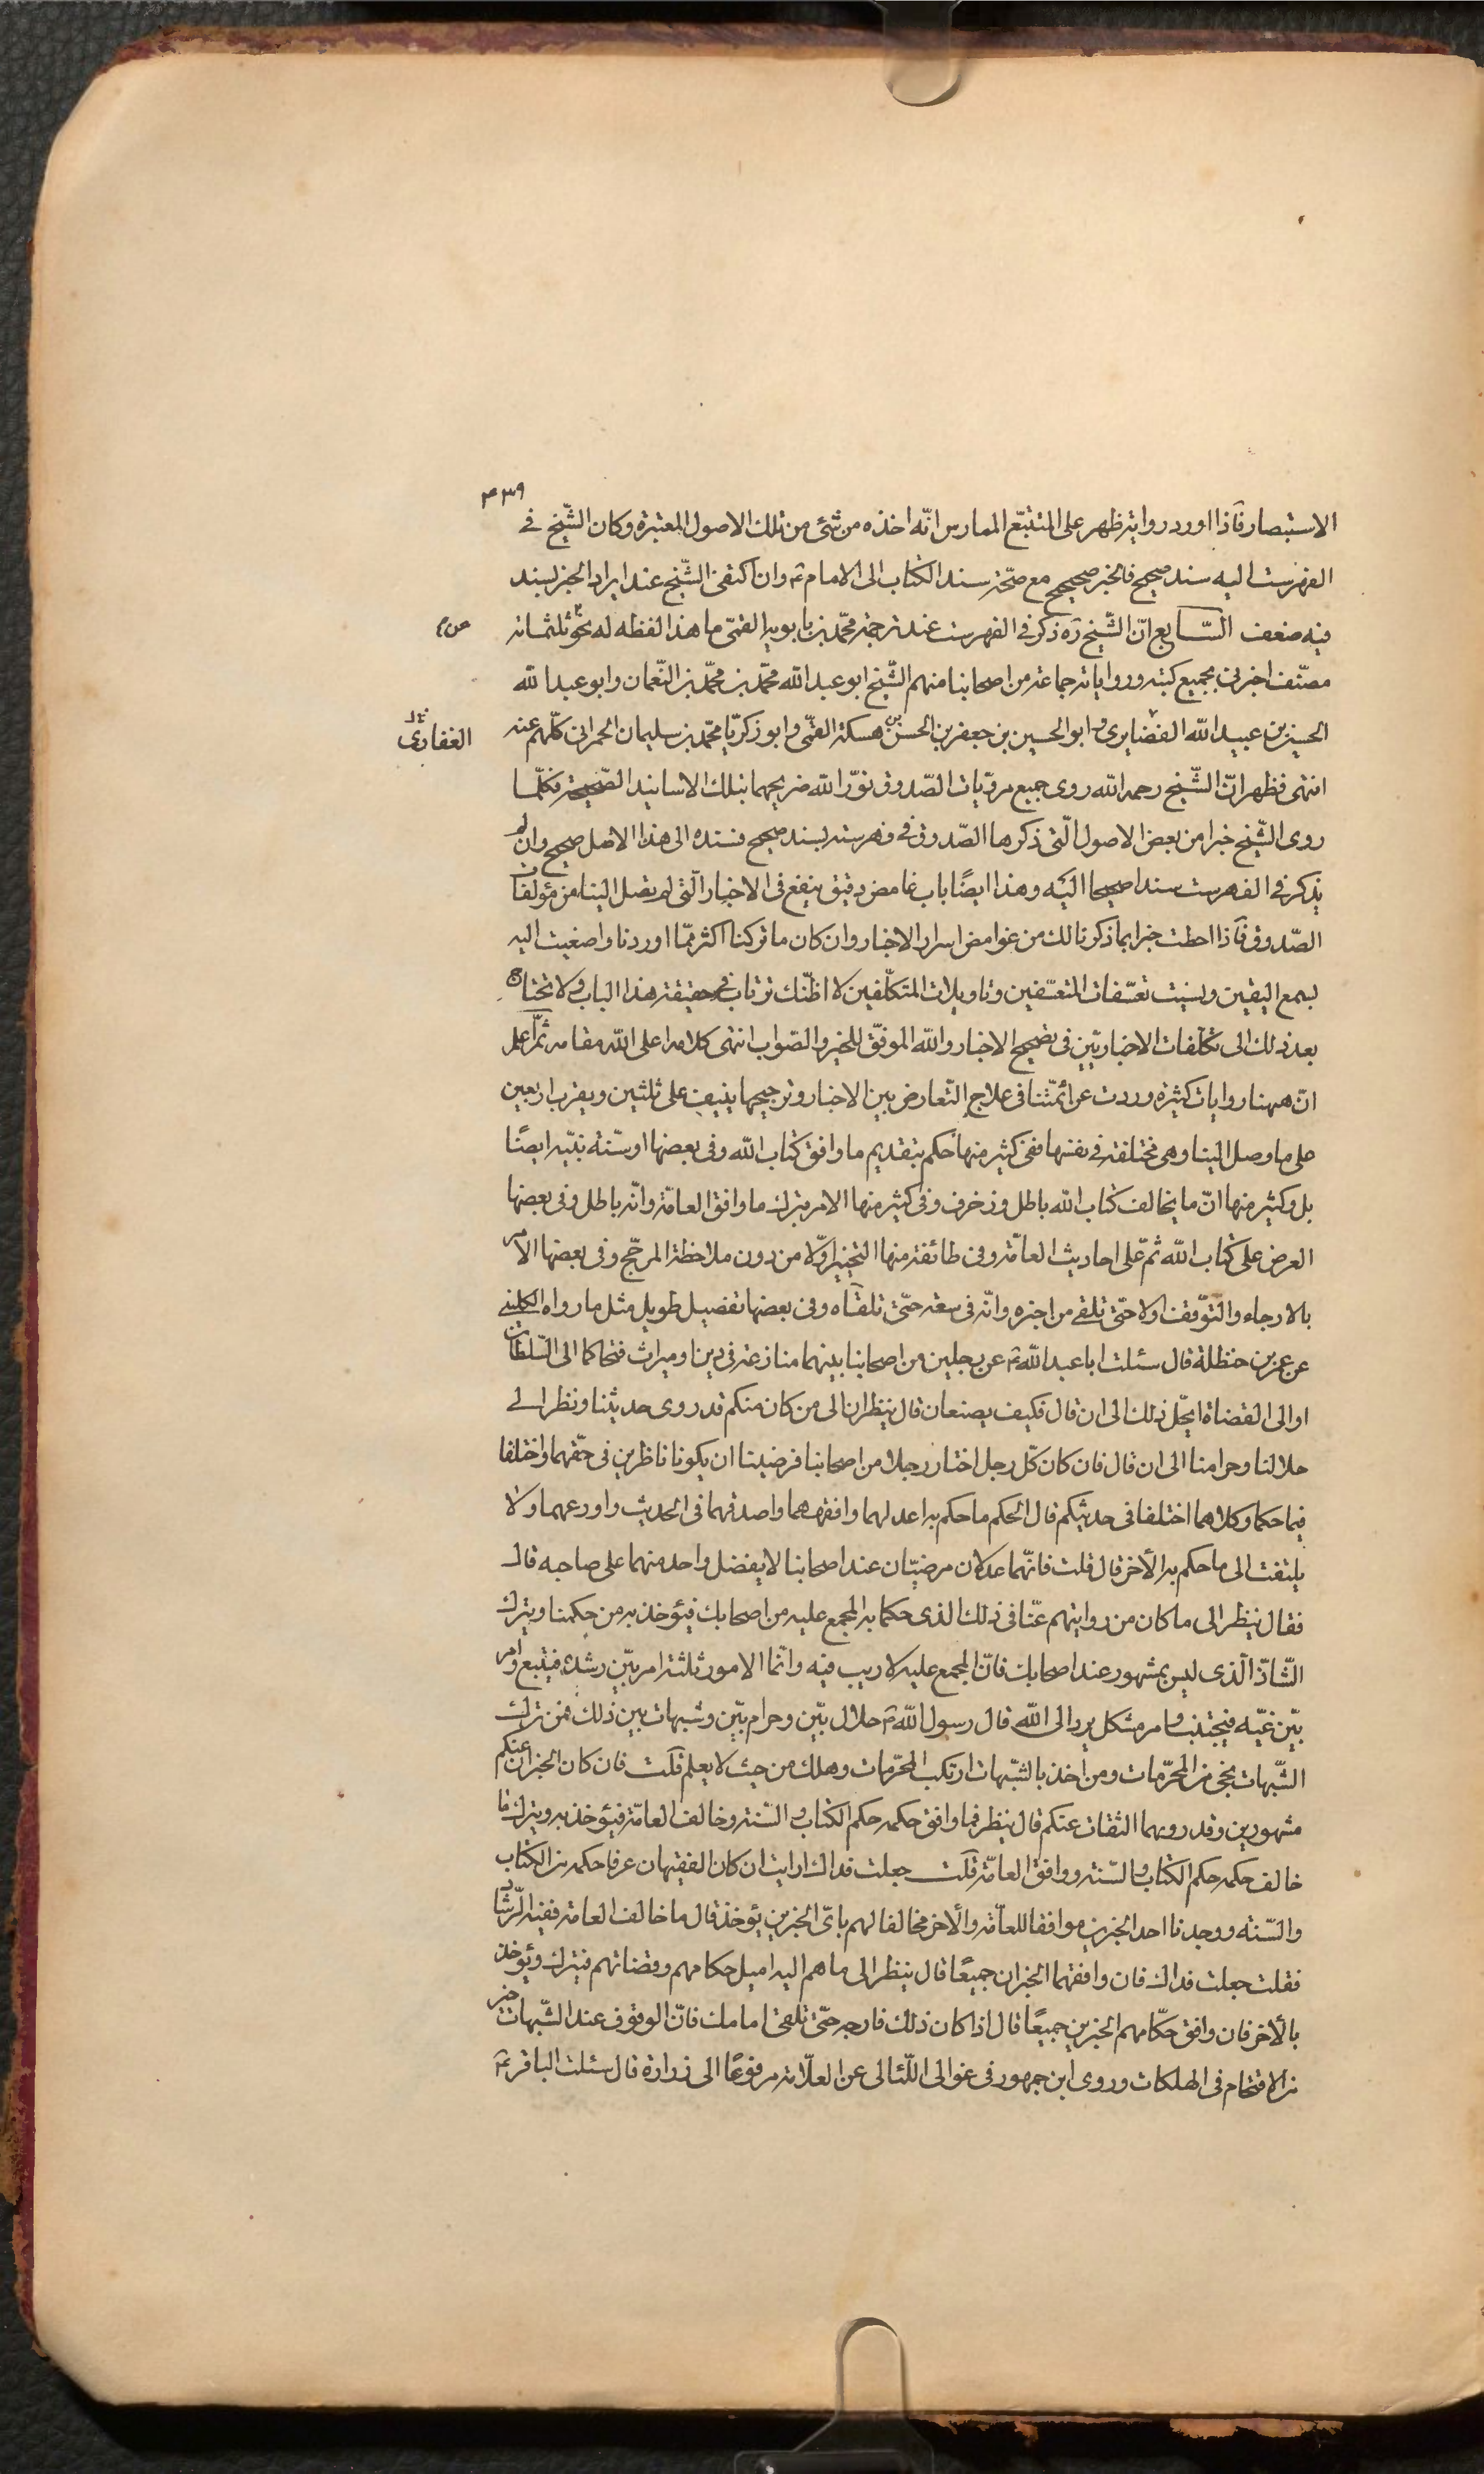 ٤٣٩
الاستبصار فاذا اورد رواية ظهر على المتتبّع الممارس انّه اخذه من شئ من تلك الاصول المعتبرة وكان الشّيخ فى
الفهرست اليه سند صحيح فالخبر صحيح مع صحّة سند الكتاب الى الامام ع وان اكتفى الشّيخ عند ايراد الخبر بسند
فيه ضعف السّابع انّ الشّيخ ره ذكر فى الفهرست عند ترجمة محمّد بن بابويه القمّى ما هذا لفظه له نحو ثلثمائة
مصنّف اخبرنى بجميع كتبه ورواياته جماعة من اصحابنا منهم الشّيخ ابو عبد الله محمّد بن محمّد بن النّعمان وابو عبد الله
الحسين بن عبيد الله الغضايرى وابو الحسين بن جعفر بن الحسن بن حسكة القمّى وابو زكريّا محمّد بن سليمان الحمرانى كلّهم عنه
الغفارى
انتهى فظهر انّ الشّيخ رحمه الله روى جميع مرويّات الصّدوق نوّر الله ضريحهما بتلك الاسانيد الصّحيحة فكلّما
روى الشّيخ خبرا من بعض الاصول الّتى ذكرها الصّدوق فى فهرسته بسند صحيح فسنده الى هذا الاصل صحيح وان لم
يذكر فى الفهرست سندا صحيحا اليه وهذا ايضًا باب غامض دقيق ينفع فى الاخبار الّتى لم يصل الينا من مؤلفات
الصّدوق فاذا احطت خبرا بما ذكرنا لك من غوامض اسرار الاخبار وان كان ما تركنا اكثر ممّا اوردنا واصغيت اليه
بسمع اليقين ونسيت تعسّفات المتعسّفين وتاويلات المتكلّفين لا اظنّك ترتاب فى حقيقة هذا الباب ولا تحتاج
بعد ذلك الى تكلّفات الاخباريّين فى تصحيح الاخبار والله الموفّق للخير والصّواب انتهى كلامه اعلى الله مقامه ثمّ اعلم
انّ ههنا روايات كثيرة وردت عن ائمّتنا فى علاج التّعارض بين الاخبار وترجيحها ينيف على ثلثين ويقرب اربعين
على ما وصل الينا وهى مختلفة فى نفسها ففى كثير منها حكم بتقديم ما وافق كتاب الله وفى بعضها او سنّة نبيّه ايضًا
بل وكثير منها انّ ما يخالف كتاب الله باطل وزخرف وفى كثير منها الامر بترك ما وافق العامّة وانّه باطل وفى بعضها
العرض على كتاب الله ثمّ على احاديث العامّة وفى طائفة منها التخيير اوّلا من دون ملاحظة المرجّح وفى بعضها الامر
بالارجاء والتوّقف اولا حتّى تلقى من اخبره وانّه فى سعة حتّى تلقاه وفى بعضها تفصيل طويل مثل ما رواه الكلينى
عن عمر بن حنظلة قال سئلت ابا عبد الله ع عن رجلين من اصحابنا بينهما منازعة فى دين او ميراث فتحاكما الى السّلطان
او الى القضاة ايحّل ذلك الى ان قال فكيف يصنعان قال ينظران الى من كان منكم قد روى حديثنا ونظر الى
حلالنا وحرامنا الى ان قال فان كان كلّ رجل اختار رجلا من اصحابنا فرضينا ان يكونا ناظرين فى حقّهما واختلفا
فيما حكما وكلاهما اختلفا فى حديثكم قال الحكم ما حكم به اعدلهما وافقههما واصدقهما فى الحديث واورعهما ولا
يلتفت الى ما حكم به الأخر قال قلت فانّهما عدلان مرضيّان عند اصحابنا لا يفضل واحد منهما على صاحبه قال
فقال ينظر الى ما كان من روايتهم عنّا فى ذلك الذى حكما به المجمع عليه من اصحابك فيؤخذ به من حكمنا ويترك
الشّاذّ الّذى ليس بمشهور عند اصحابك فانّ المجمع عليه لا ريب فيه وانّما الامور ثلثة امر بيّن رشده فيتبع وامر
بيّن غيّه فيجتنب وامر مشكل يردّ الى الله قال رسول الله ص حلال بيّن وحرام بيّن وشبهات بين ذلك فمن ترك
الشّبهات نجى من المحرّمات ومن اخذ بالشّبهات ارتكب المحرّمات وهلك من حيث لا يعلم قلت فان كان الخبران عنكم
مشهورين وقد رويهما الثقات عنكم قال ينظر فما وافق حكمه حكم الكتاب والسّنة وخالف العامّة فيؤخذ به ويترك ما
خالف حكمه حكم الكتاب والسّنة ووافق العامّة قلت جعلت فداك ارايت ان كان الفقيهان عرفا حكمه من الكتاب
والسّنة ووجدنا احد الخبرين موافقا للعامّة والأخر مخالفا لهم باىّ الخبرين يؤخذ قال ما خالف العامة ففيه الرّشاد
فقلت جعلت فداك فان وافقهما الخبران جميعًا قال ينظر الى ما هم اليه اميل حكامهم وقضاتهم فيترك ويؤخذ
بالأخر فان وافق حكّامهم الخبرين جميعًا قال اذا كان ذلك فارجه حتّى تلقى امامك فانّ الوقوف عند الشّبهات خير
من الاقتحام فى الهلكات وروى ابن جمهور فى غوالى اللّئالى عن العلّامة مرفوعًا الى زرارة قال سئلت الباقر ع